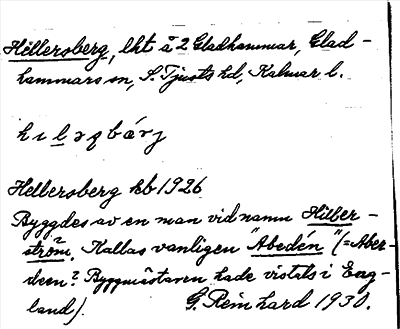 Hillersberg, lht å 2 Gladhammar, Glad-
hammars sn, S. Tjusts hd, Kalmar l.
hiləqbárj
Hellersberg kb 1926
Byggdes av en man vid namn Hiller-
ström? Kallas vanligen "Abedén" (= Aber-
deen? Byggmästaren hade vistats i Eng-
land).   G. Reinhard 1930.